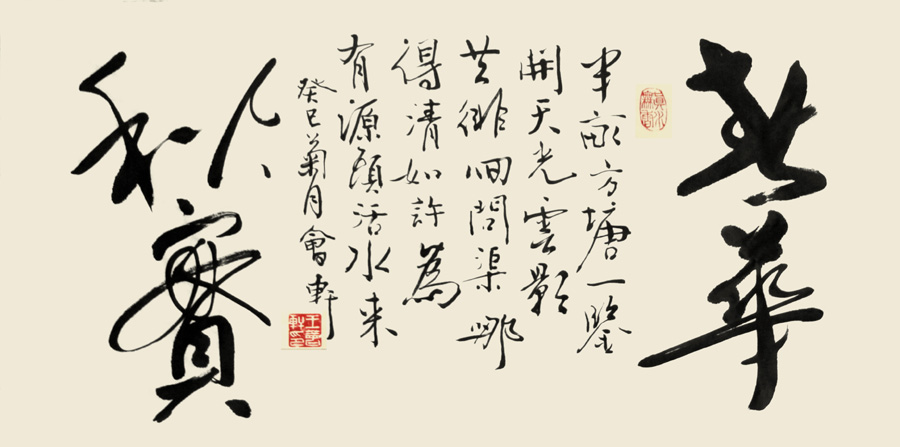 春華
半畝方塘一鑒
開天光雲影
共徘徊問渠哪
得清如許為
有源頭活水来
癸巳菊月會軒
王會軒印
秋實